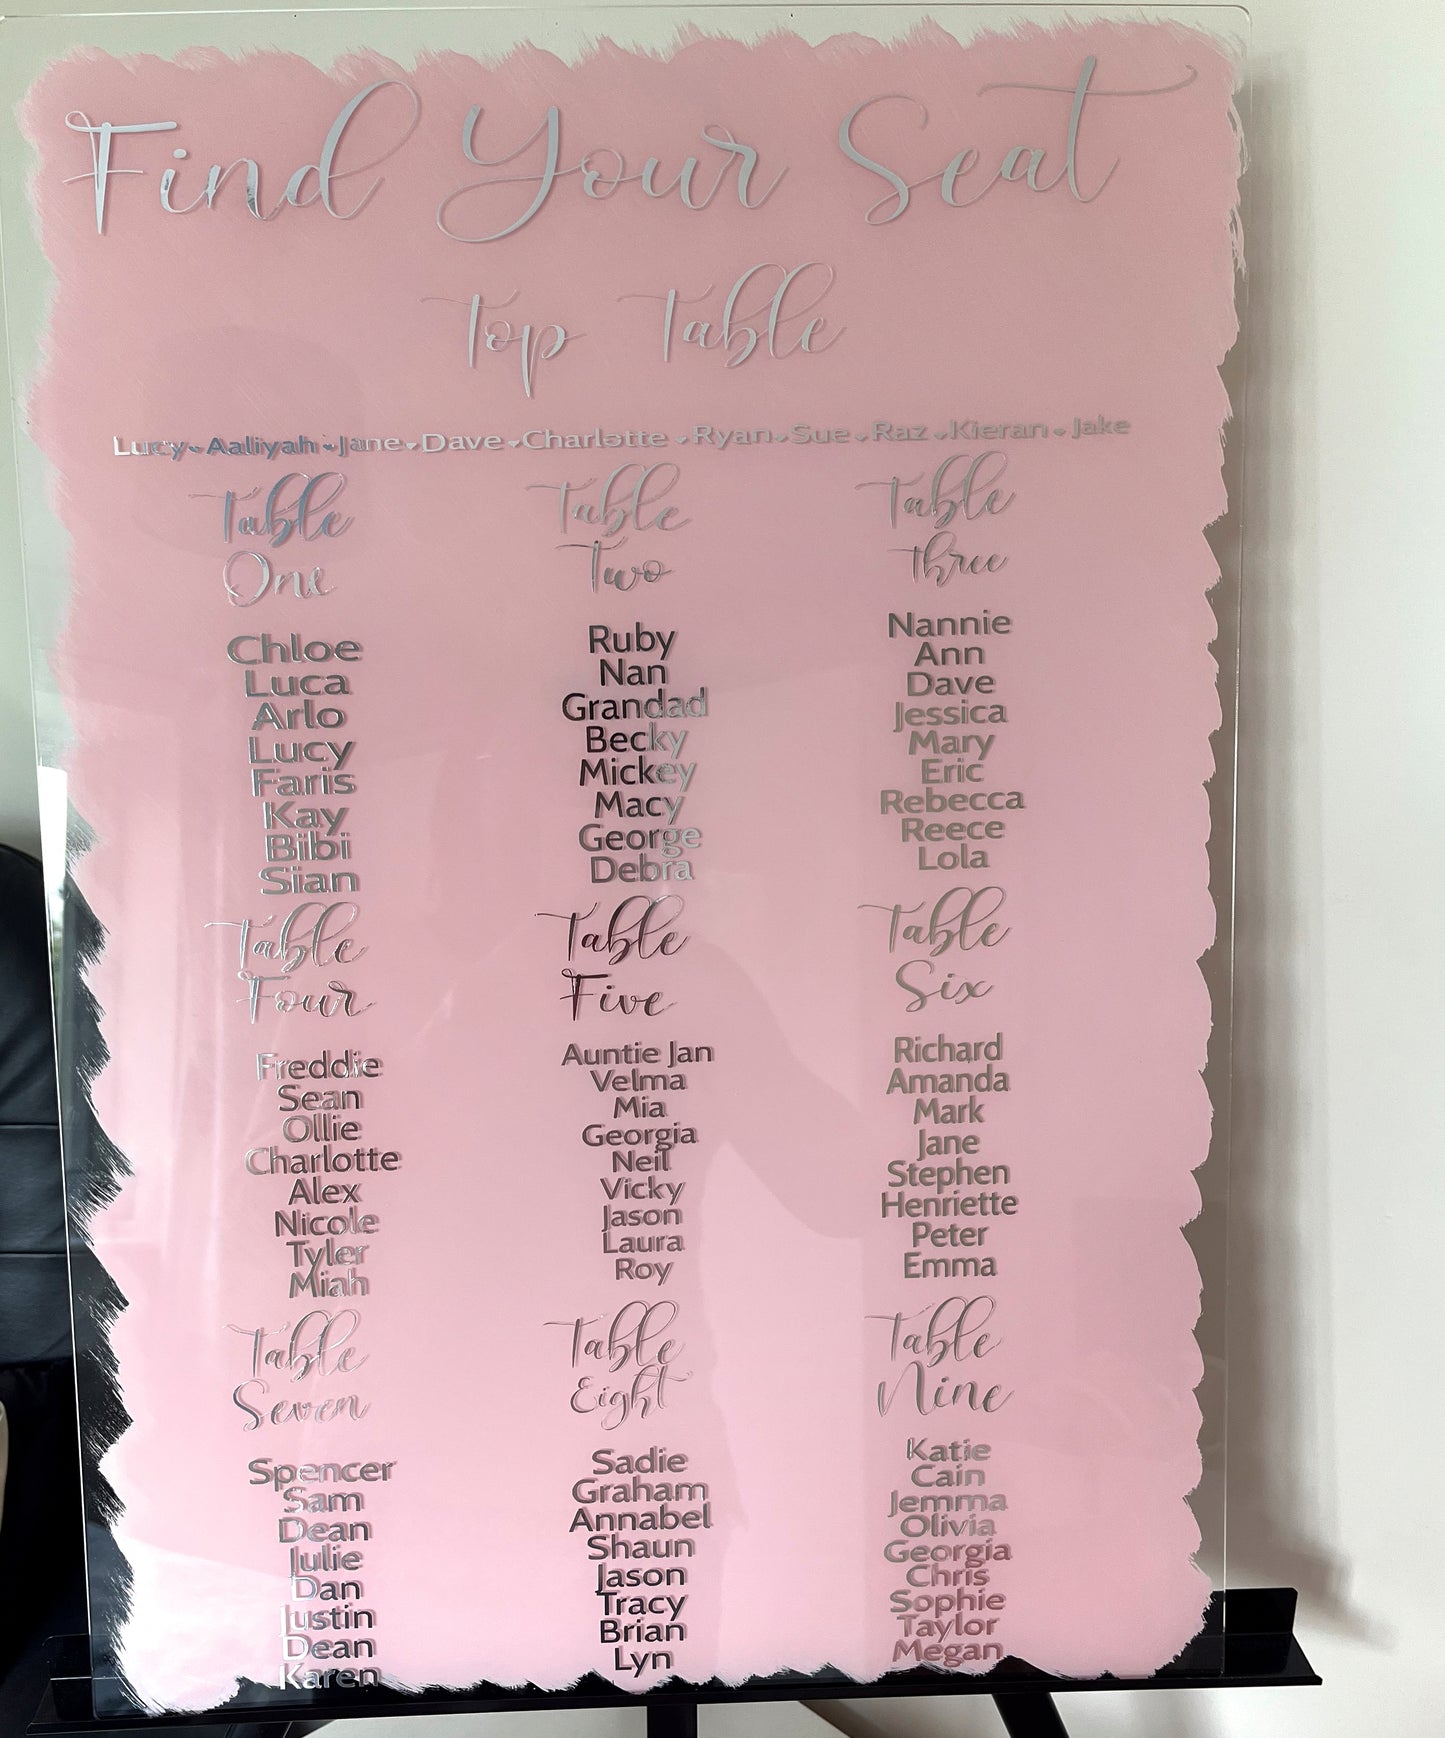 Find Your Seat
Top Table
Lucy Aaliyah Jane Dave Charlotte Ryan Sue Raz Kieran Jake
Table
One
Chloe
Luca
Arlo
Lucy
Faris
Kay
Bibi
Sian
Table
Two
Ruby
Nan
Grandad
Becky
Mickey
Macy
George
Debra
Table
Three
Nannie
Ann
Dave
Jessica
Mary
Eric
Rebecca
Reece
Lola
Table
Four
Freddie
Sean
Ollie
Charlotte
Alex
Nicole
Tyler
Miah
Table
Five
Auntie Jan
Velma
Mia
Georgia
Neil
Vicky
Jason
Laura
Roy
Table
Six
Richard
Amanda
Mark
Jane
Stephen
Henriette
Peter
Emma
Table
Seven
Spencer
Sam
Dean
Julie
Dan
Justin
Dean
Karen
Table
Eight
Sadie
Graham
Annabel
Shaun
Jason
Tracy
Brian
Lyn
Table
Nine
Katie
Cain
Jemma
Olivia
Georgia
Chris
Sophie
Taylor
Megan